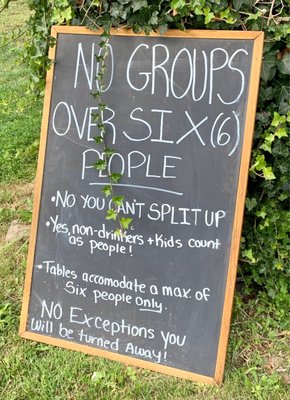 NO GROUPS
OVER SIX (6)
PEOPLE
• NO YOU CAN'T SPLIT UP
• Yes, non-drinkers + Kids count
as people!
• Tables accomodate a max. of
Six people only.
NO Exceptions you
will be turned Away!